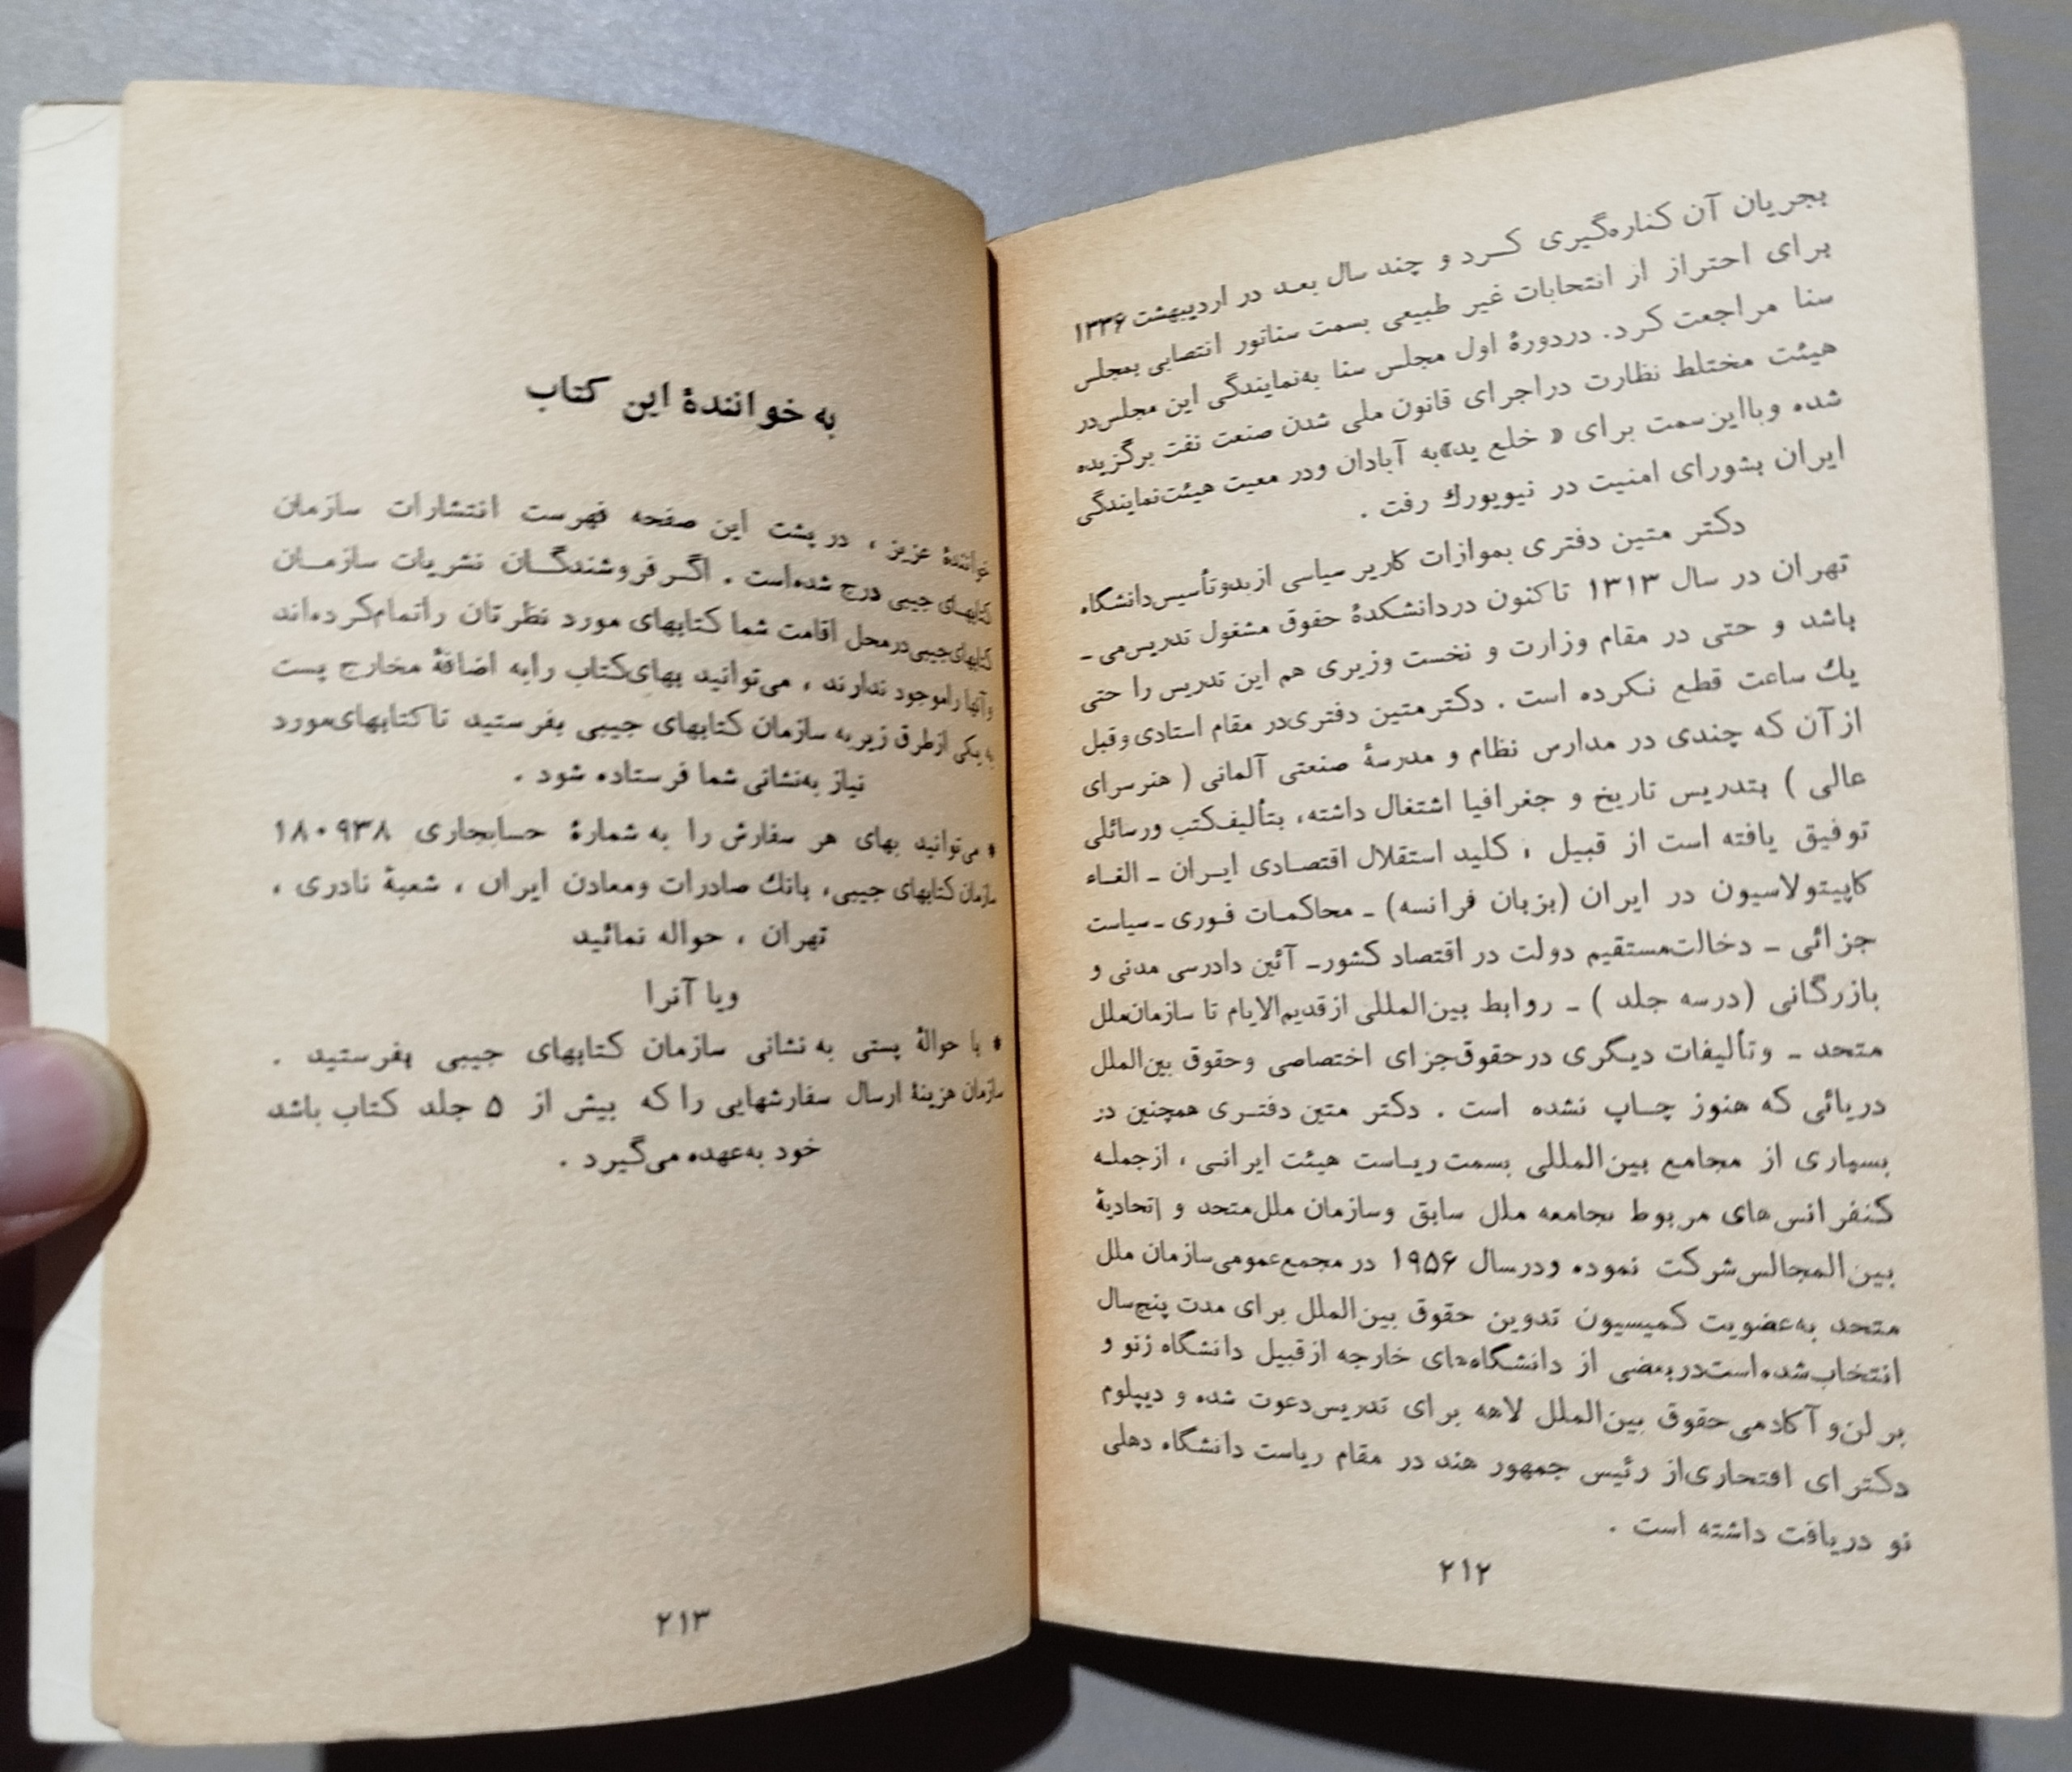 بجریان آن کناره‌گیری کرد و چند سال بعد در اردیبهشت ۱۳۳۶
برای احتراز از انتخابات غیر طبیعی بسمت سناتور انتصابی بمجلس
سنا مراجعت کرد. دردورهٔ اول مجلس سنا به‌نمایندگی این مجلس‌در
هیئت مختلط نظارت دراجرای قانون ملی شدن صنعت نفت برگزیده
شده وبااین‌سمت برای « خلع ید»به آبادان ودر معیت هیئت‌نمایندگی
ایران بشورای امنیت در نیویورك رفت .
دکتر متین دفتری بموازات کاریر سیاسی ازبدوتأسیس‌دانشگاه
تهران در سال ۱۳۱۳ تاکنون دردانشکدهٔ حقوق مشغول تدریس‌می ـ
باشد و حتی در مقام وزارت و نخست وزیری هم این تدریس را حتی
یك ساعت قطع نکرده است . دکترمتین دفتری‌در مقام استادی وقبل
ازآن که چندی در مدارس نظام و مدرسهٔ صنعتی آلمانی ( هنرسرای
عالی ) بتدریس تاریخ و جغرافیا اشتغال داشته، بتألیف‌کتب ورسائلی
توفیق یافته است از قبیل ، کلید استقلال اقتصادی ایران ـ الغاء
کاپیتولاسیون در ایران (بزبان فرانسه) ـ محاکمات فوری ـ سیاست
جزائی ـ دخالت‌مستقیم دولت در اقتصاد کشورـ آئین دادرسی مدنی و
بازرگانی (درسه جلد ) ـ روابط بین‌المللی ازقدیم‌الایام تا سازمان‌ملل
متحد ـ وتألیفات دیگری درحقوق‌جزای اختصاصی وحقوق بین‌الملل
دریائی که هنوز چاپ نشده است . دکتر متین دفتری همچنین در
بسیاری از مجامع بین‌المللی بسمت ریاست هیئت ایرانی ، ازجمله
کنفرانس‌های مربوط بجامعه ملل سابق وسازمان ملل‌متحد و اتحادیهٔ
بین‌المجالس‌شرکت نموده ودرسال ۱۹۵۶ در مجمع‌عمومی‌سازمان ملل
متحد به‌عضویت کمیسیون تدوین حقوق بین‌الملل برای مدت پنج‌سال
انتخاب‌شده‌است‌دربعضی از دانشگاه‌های خارجه ازقبیل دانشگاه ژنو و
برلن‌و آکادمی‌حقوق بین‌الملل لاهه برای تدریس‌دعوت شده و دیپلوم
دکترای افتخاری‌از رئیس جمهور هند در مقام ریاست دانشگاه دهلی
نو دریافت داشته است .
۲۱۲
به خوانندهٔ این کتاب
خوانندهٔ عزیز ، در پشت این صفحه فهرست انتشارات سازمان
کتابهای جیبی درج شده‌است . اگر فروشندگان نشریات سازمان
کتابهای‌جیبی‌درمحل اقامت شما کتابهای مورد نظرتان راتمام‌کرده‌اند
وآنها راموجود ندارند ، می‌توانید بهای‌کتاب رابه اضافهٔ مخارج پست
به یکی ازطرق زیربه سازمان کتابهای جیبی بفرستید تاکتابهای‌مورد
نیاز به‌نشانی شما فرستاده شود .
* می‌توانید بهای هر سفارش را به شمارهٔ حسابجاری ۱۸۰۹۳۸
سازمان کتابهای جیبی، بانك صادرات ومعادن ایران ، شعبهٔ نادری ،
تهران ، حواله نمائید
ویا آنرا
* با حوالهٔ پستی به نشانی سازمان کتابهای جیبی بفرستید .
سازمان هزینهٔ ارسال سفارشهایی را که بیش از ۵ جلد کتاب باشد
خود به‌عهده می‌گیرد .
۲۱۳